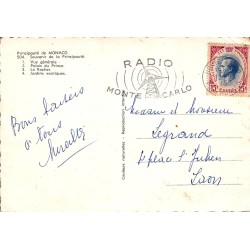 Principauté de MONACO
504. Souvenir de la Principauté
1. Vue générale
2. Palais du Prince
3. Le Rocher
4. Jardins exotiques.
RADIO
MONTE CARLO
Bons baisers
à tous
Madame et Monsieur
Legrand
place St Julien
Laon
Couleurs naturelles